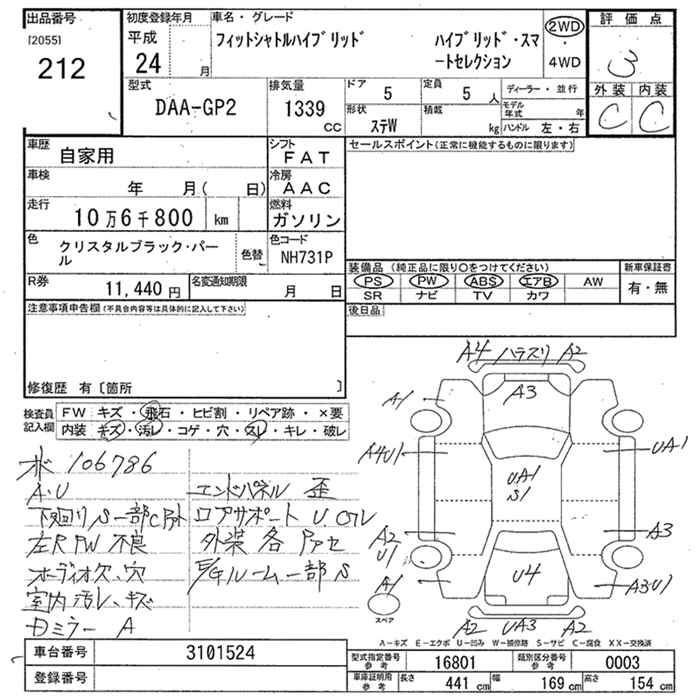 出品番号
[2055]
212
初度登録年月
平成
24 月
車名・グレード
フィットシャトルハイブリッド ハイブリッド・スマートセレクション
2WD
・
4WD
評価点
3
外装 内装
C C
型式
DAA-GP2
排気量
1339
cc
ドア
5
定員
5 人
形状
ステW
積載
kg
ディーラー・並行
モデル年式 年
ハンドル 左・右
車歴
自家用
シフト
FAT
車検
年 月( 日)
冷房
AAC
走行
10万6千800 km
燃料
ガソリン
色
クリスタルブラック・パール
色替
色コード
NH731P
R券
11,440 円
名変通知期限
月 日
セールスポイント(正常に機能するものに限ります)
装備品 (純正品に限り○をつけてください)
PS PW ABS エアB AW
SR ナビ TV カワ
新車保証書
有・無
後日品
注意事項申告欄(不具合内容等は具体的に記入して下さい)
修復歴 有〔箇所 〕
検査員記入欄
FW キズ・飛石・ヒビ割・リペア跡・×要
内装 キズ・汚レ・コゲ・穴・スレ・キレ・破レ
106786
A・U
下回りS一部C
左R PW 不良
オーディオ欠、穴
室内汚レ、キズ
Dミラー A
エンドパネル 歪
ロアサポート U
外装 各
E/Gルーム一部S
A4 ハラスリ A2
A1
A3
A4U1
UA1
UA1
S1
A2
U1
A3
A1
U4
A3U1
スペア
A2 UA3 A2
A-キズ E-エクボ U-凹み W-補修跡 S-サビ C-腐食 XX-交換済
車台番号
3101524
登録番号
型式指定番号
参考
16801
類別区分番号
参考
0003
車庫証明用
参考
長さ
441 cm
幅
169 cm
高さ
154 cm